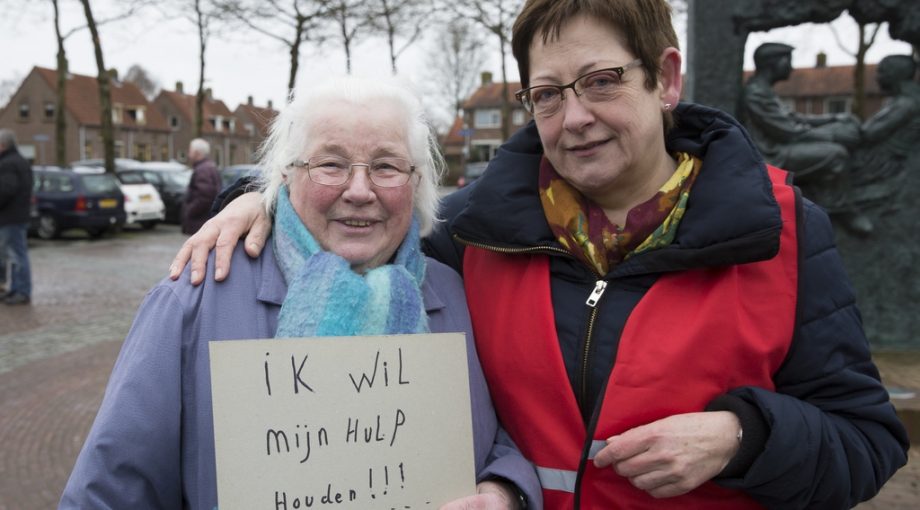 iK wiL
mijn HuLP
Houden!!!